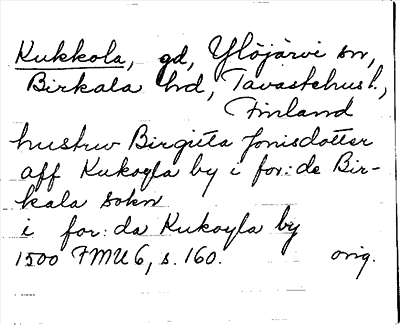 Kukkola, gd, Ylöjärvi sn,
Birkala hd, Tavastehus l.,
Finland
hustrw Birgitta Jonisdotter
aff Kukoyla by i for:de Bir-
kala sokn
i for:da Kukoyla by
1500 FMU 6, s. 160. orig.